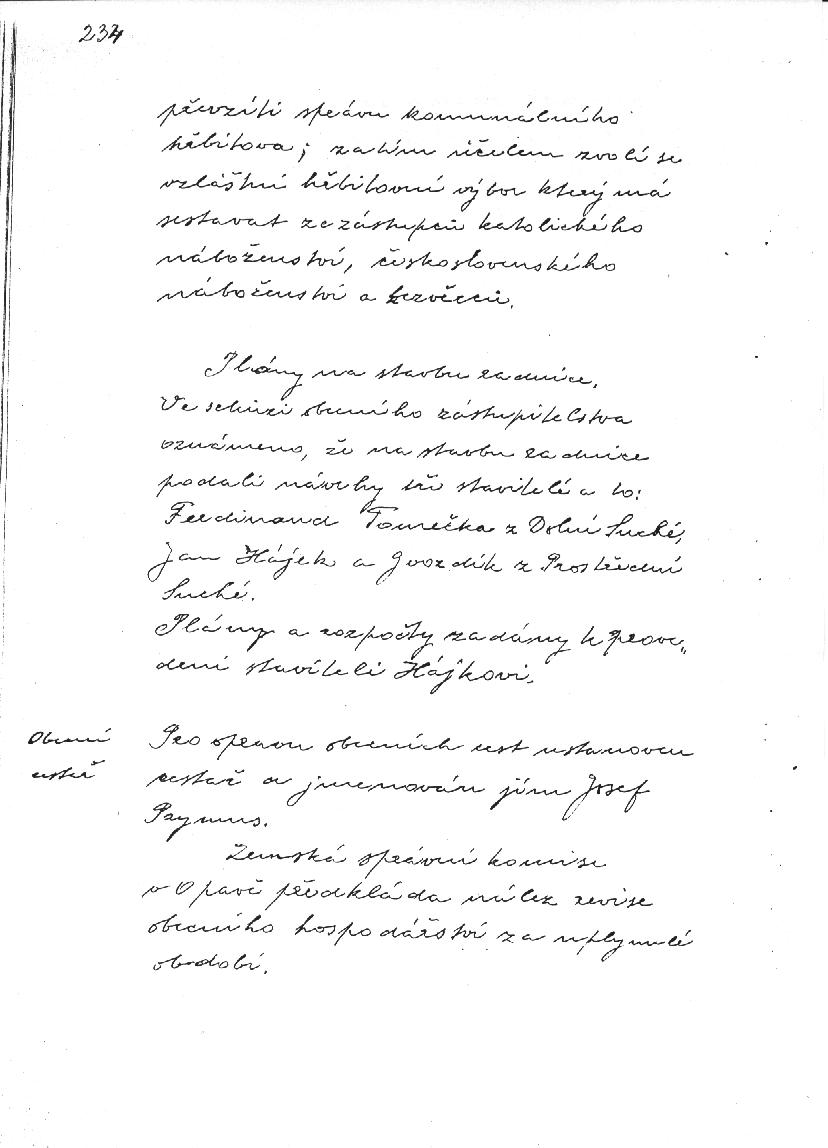 234
převzíti správu komunálního
hřbitova; za tím účelem zvolí se
vzláštní hřbitovní výbor který má
sestavat ze zástupců katolického
náboženství, československého
náboženství a bezvěrců.
Plány na stavbu radnice.
Ve schůzi obecního zastupitelstva
oznámeno, že na stavbu radnice
podali návrhy tři stavitelé a to:
Ferdinand Tomečka z Dolní Suché,
Jan Hájek a Gvozdík z Prostřední
Suché.
Plány a rozpočty zadány k prove„
dení staviteli Hájkovi.
Obecní
cestář
Pro opravu obecních cest ustanoven
cestař a jmenován jím Josef
Prymus.
Zemská správní komise
v Opavě předkláda nález revise
obecního hospodářství za uplynulé
období.